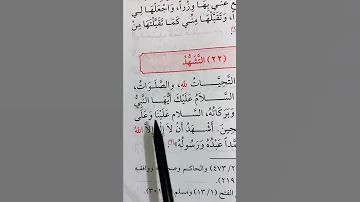 عَنِّي بِهَا وِزْراً، وَاجْعَلْهَا لِي
وَتَقَبَّلْهَا مِنِّي كَمَا تَقَبَّلْتَهَا مِنْ
(٢٢) التَّشَهُّدُ
التَّحِيَّاتُ لِلَّهِ، وَالصَّلَوَاتُ،
السَّلَامُ عَلَيْكَ أَيُّهَا النَّبِيُّ
وَبَرَكَاتُهُ، السَّلَام عَلَيْنَا وَعَلَى
أَشْهَدُ أَنْ لَا إِلَهَ إِلَّا اللهُ
عَبْدُهُ وَرَسُولُهُ
٤٧٣/٢ والحاكم ووافقه
٢١٩.
الفتح (١٣/١) ومسلم